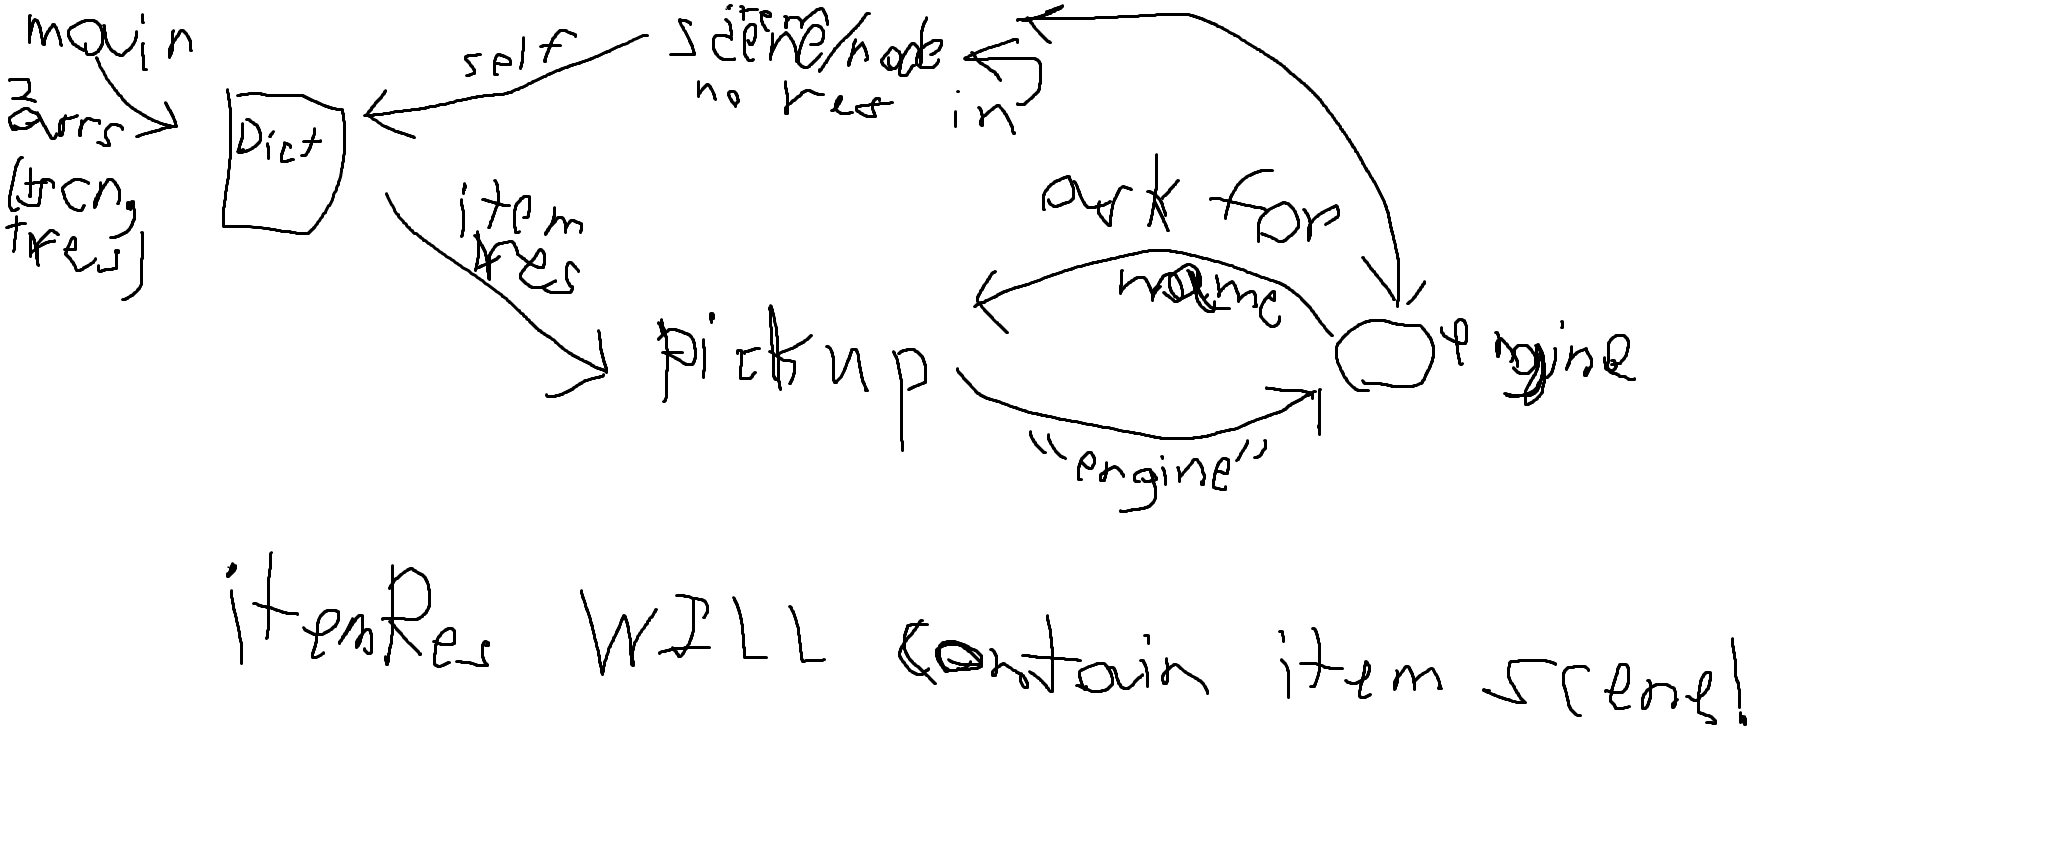 main
2
arrs
(tscn,
tres)
Dict
self
item
scene/node
no res in
item
res
ask for
name
pickup
engine
"engine"
itemRes WILL contain item scene!